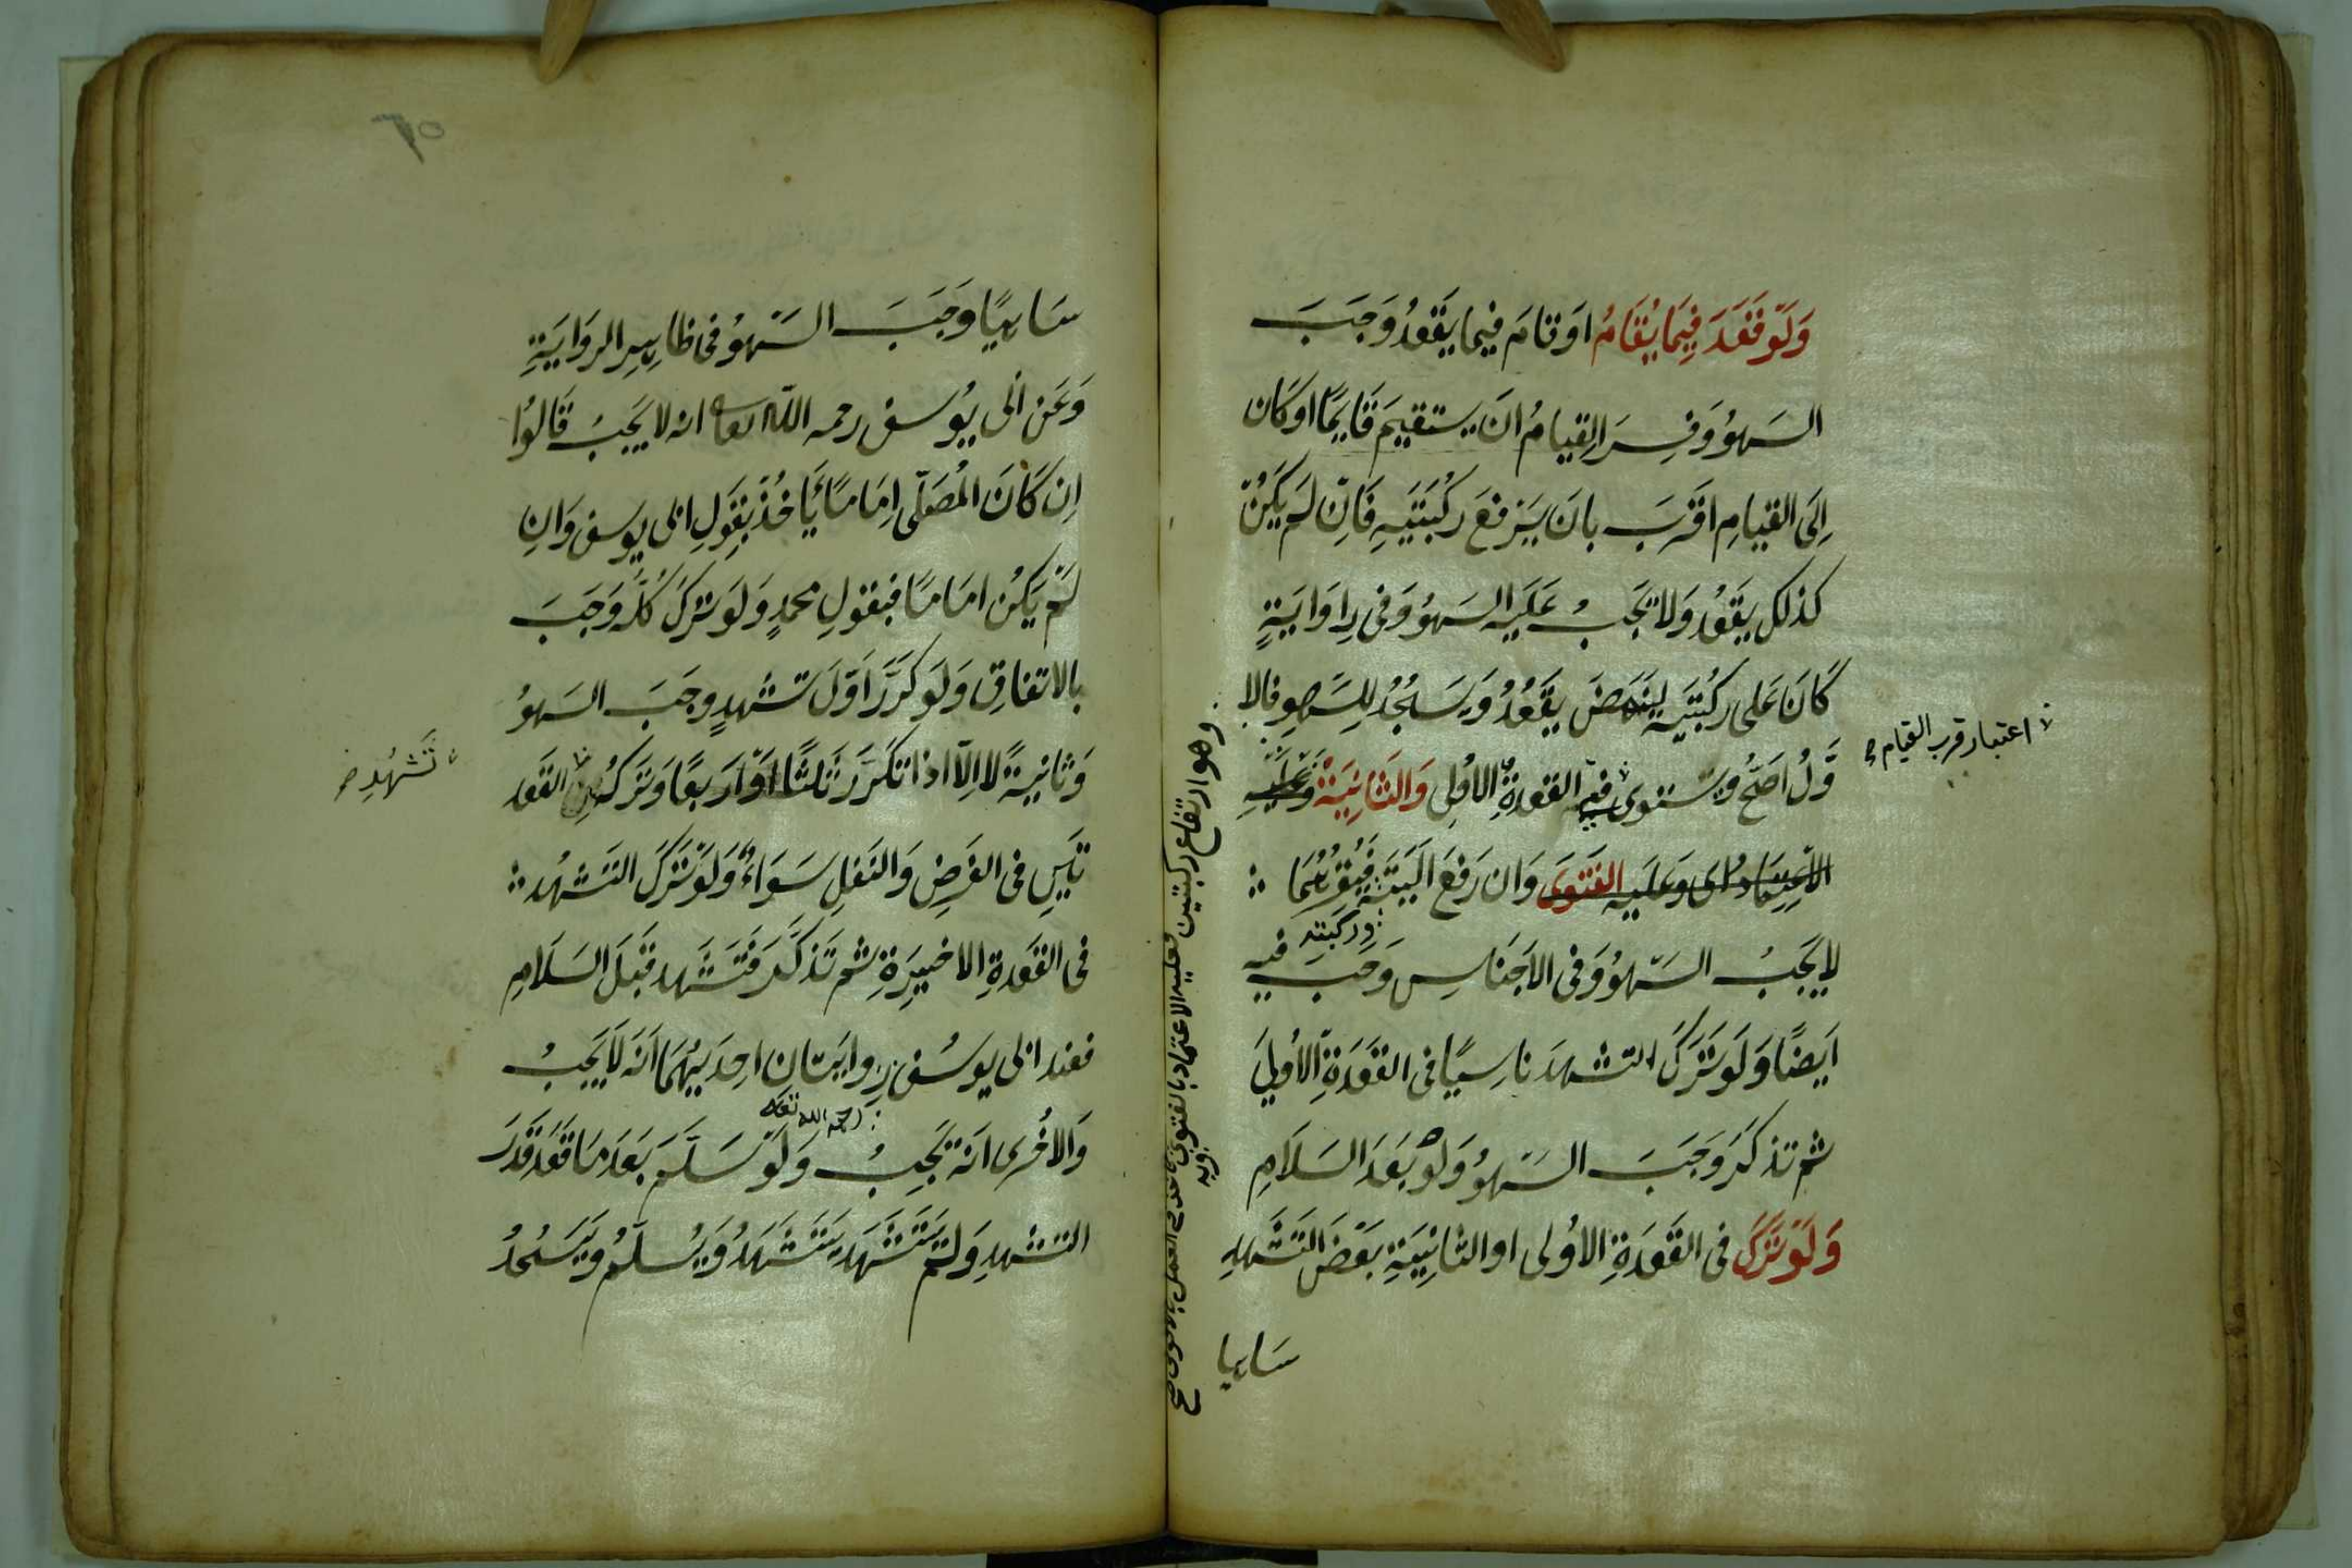 وَلَوْ قَعَدَ فِيمَا يُقَامُ اَوْ قامَ فيما يَقْعُدُ وَجَبَ
السَهوُ وَفُسِرَ القِيامُ انَ يستقيمَ قَايمًا او كَان
اِلَى القيامِ اقَرَبَ بانَ يَرفعَ رُكْبَتَيهِ فَاِنْ لَم يَكُنْ
كذلكَ يَقْعُدُ وَلا يَجبُ عَلَيه السَهوُ وَفى رِاوَايَةٍ
كَانَ عَلى ركُبتَيه لِيَنهَضَ يَقْعُدُ وَيَسجُدُ لِلسَّهوِ فالا
وَّلُ اَصَحُّ وَيستوى فيه القعدةِ الاُولى وَالثَانِيَةُ وَعَلَيْهِ
الاِعتِمَادُ اى وَعَلَيهِ الفَتْوَى وَان رَفعَ اَليَتَيهِ
وركبتيه
لاَيَجبُ السَهوُ وَفى الاَجنَاسِ وَجَبَ فيه
اَيضًا وَلَو تَرَكَ التشهدَ ناسِيًا فى القَعْدَةِ الاُولىَ
ثم تذكَرَ وَجَبَ السَهوُ وَلَوْ بَعَدَ السَلاَمِ
وَلَوْ تَرَكَ فى القَعَدَةِ الاُولى او الثانِيَةِ بَعْضَ التَشَهدِ
ساهيا
اعتبار قرب القيام
وهو ارتفاع ركبتين فعليه الاعتماد
سَاهيًا وَجَبَ السَهوُ فى ظاهِرِ الروَايَةِ
وَعَن اَبى يُوسف رحمه الله تعا انه لا يَجبُ قَالوُا
اِن كَانَ المُصَلّى اِمَامًا يَاخُذُ بقَولِ ابى يوسف وَانِ
لَم يَكُن امَامًا فبقولِ محمدٍ وَلَو تركَ كُلَّهُ وَجَبَ
بالاتفاقِ وَلَو كَرَّرَ اَوّلَ تشهدٍ وجَبَ السَهوُ
وَثانِيةً لا اِلاّ اذا تكَرَرَ ثَلثًا اَوْ اربعًا وَتَركُهُ القعَد
تشهد
تَيَنِ فى الفَرضِ وَالنَفلِ سَوَاءٌ وَلَوْ تَرَكَ التَشَهُدَ
فى القَعَدةِ الاخيرَةِ ثم تَذكَّرَ فَتَشَهد قَبلَ السَلامِ
فعند ابى يوسُف رِوايَتانِ اِحدَيهُمَا اَنَه لاَيَجبُ
رحمه الله تعا
وَالاُخرى انه تَجِبُ وَلَوْ سَلَّمَ بَعدَ مَا قَعَدَ قَدَرَ
التشهدِ وَلَم يَتَشَهَد يَتَشَهَدُ وَيُسلّمُ وَيَسجُدُ